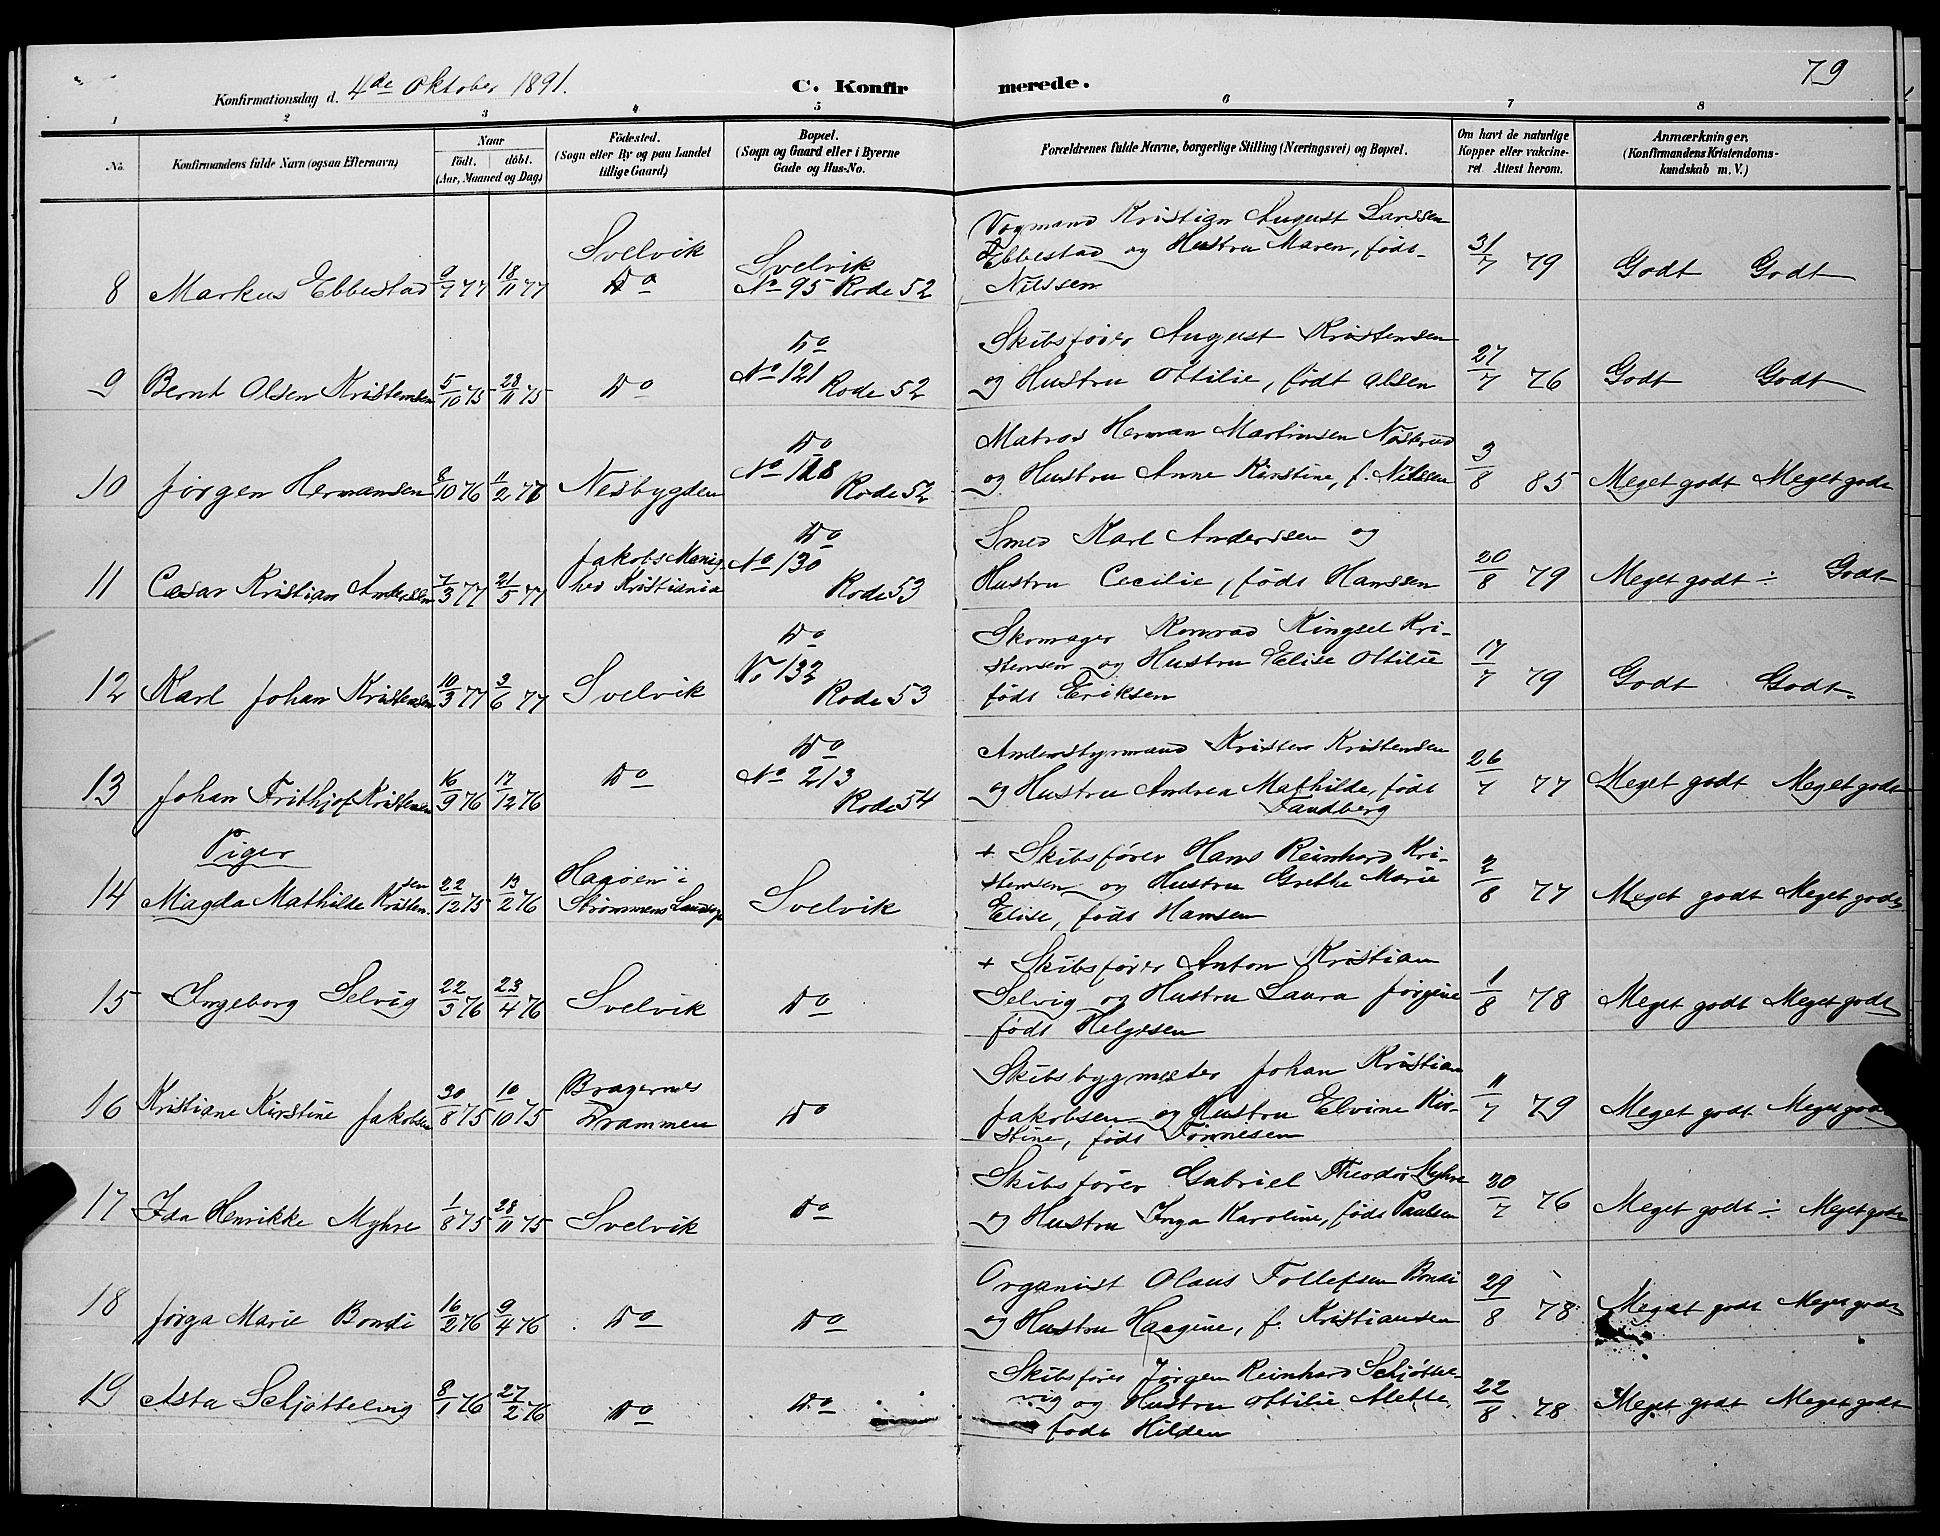 79
Konfirmationsdag d. 4de Oktober 1891.
C. Konfirmerede.
1 2 3 4 5 6 7 8
No.
Konfirmandens fulde Navn (ogsaa Efternavn)
Naar
födt. döbt.
(Aar, Maaned og Dag)
Födested.
(Sogn eller By og paa Landet
tillige Gaard)
Bopæl.
(Sogn og Gaard eller i Byerne
Gade og Hus-No.
Forældrenes fulde Navne, borgerlige Stilling (Næringsvei) og Bopæl.
Om havt de naturlige
Kopper eller vakcine-
ret Attest herom.
Anmærkninger.
(Konfirmandens Kristendoms-
kundskab m. V.)
8 Markus Ebbestad 9/7 77 18/11 77
Svelvik
Do
Svelvik
No 95 Rode 52
Vogmand Kristian August Larssen
Ebbestad og Hustru Maren, født
Nilssen
31/7 79 Godt Godt
9 Bernt Olsen Kristensen 5/10 75 28/11 75 Do
Do
No 121
Rode 52
Skibsfører August Kristensen
og Hustru Ottilie, født Olsen
27/7 76 Godt Godt
10 Jørgen Hermansen 8/10 76 11/2 77 Nesbygden
Do
No 118
Rode 52
Matros Herman Martinsen Nøstrud
og Hustru Anne Kirstine, f. Nilssen
3/8 85 Meget godt Meget godt
11 Cæsar Kristian Andersen 7/3 77 21/5 77
Jakobs Menig-
hed Kristiania
Do
No 130
Rode 53
Smed Karl Anderssen og
Hustru Cecilie, født Hanssen
20/8 79 Meget godt ÷ Godt
12 Karl Johan Kristensen 10/3 77 3/6 77 Svelvik
Do
No 132
Rode 53
Skomager Konrad Kingsel Kri-
stensen og Hustru Elise Ottilie
født Eriksen
17/7 79 Godt Godt
13 Johan Frithjof Kristensen 16/9 76 17/12 76 Do
Do
No 213
Rode 54
Anderstyrmand Krister Kristensen
og Hustru Andrea Mathilde, født
Tandberg
26/7 77 Meget godt Meget godt
Piger
14 Magda Mathilde Kristensen 22/12 75 13/2 76
Hagøen i
Strømmens Landsogn
Svelvik
+ Skibsfører Hans Reinhard Kri-
stensen og Hustru Grethe Marie
Elise, født Hansen
2/8 77 Meget godt Meget godt
15 Ingeborg Selvig 22/3 76 23/4 76 Svelvik Do
+ Skibsfører Anton Kristian
Selvig og Hustru Laura Jørgine
født Helgesen
1/8 78 Meget godt Meget godt
16 Kristiane Kirstine Jakobsen 30/8 75 10/10 75
Bragernes
Drammen
Do
Skibsbygmester Johan Kristian
Jakobsen og Hustru Elvine Kir-
stine, født Tønnesen
11/7 79 Meget godt Meget godt
17 Ida Henrikke Myhre 1/8 75 28/11 75 Svelvik Do
Skibsfører Gabriel Theodor Myhre
og Hustru Inga Karoline, født Paulsen
20/7 76 Meget godt ÷ Meget godt
18 Jørga Marie Bondi 16/2 76 9/4 76 Do Do
Organist Olaus Tollefsen Bondi
og Hustru Haagine, f. Kristiansen
29/8 78 Meget godt Meget godt
19 Asta Schjøttelvig 8/1 76 27/2 76 Do Do
Skibsfører Jørgen Reinhard Schjøttel-
vig og Hustru Ottilie Alette,
født Hilden
22/8 78 Meget godt Meget godt